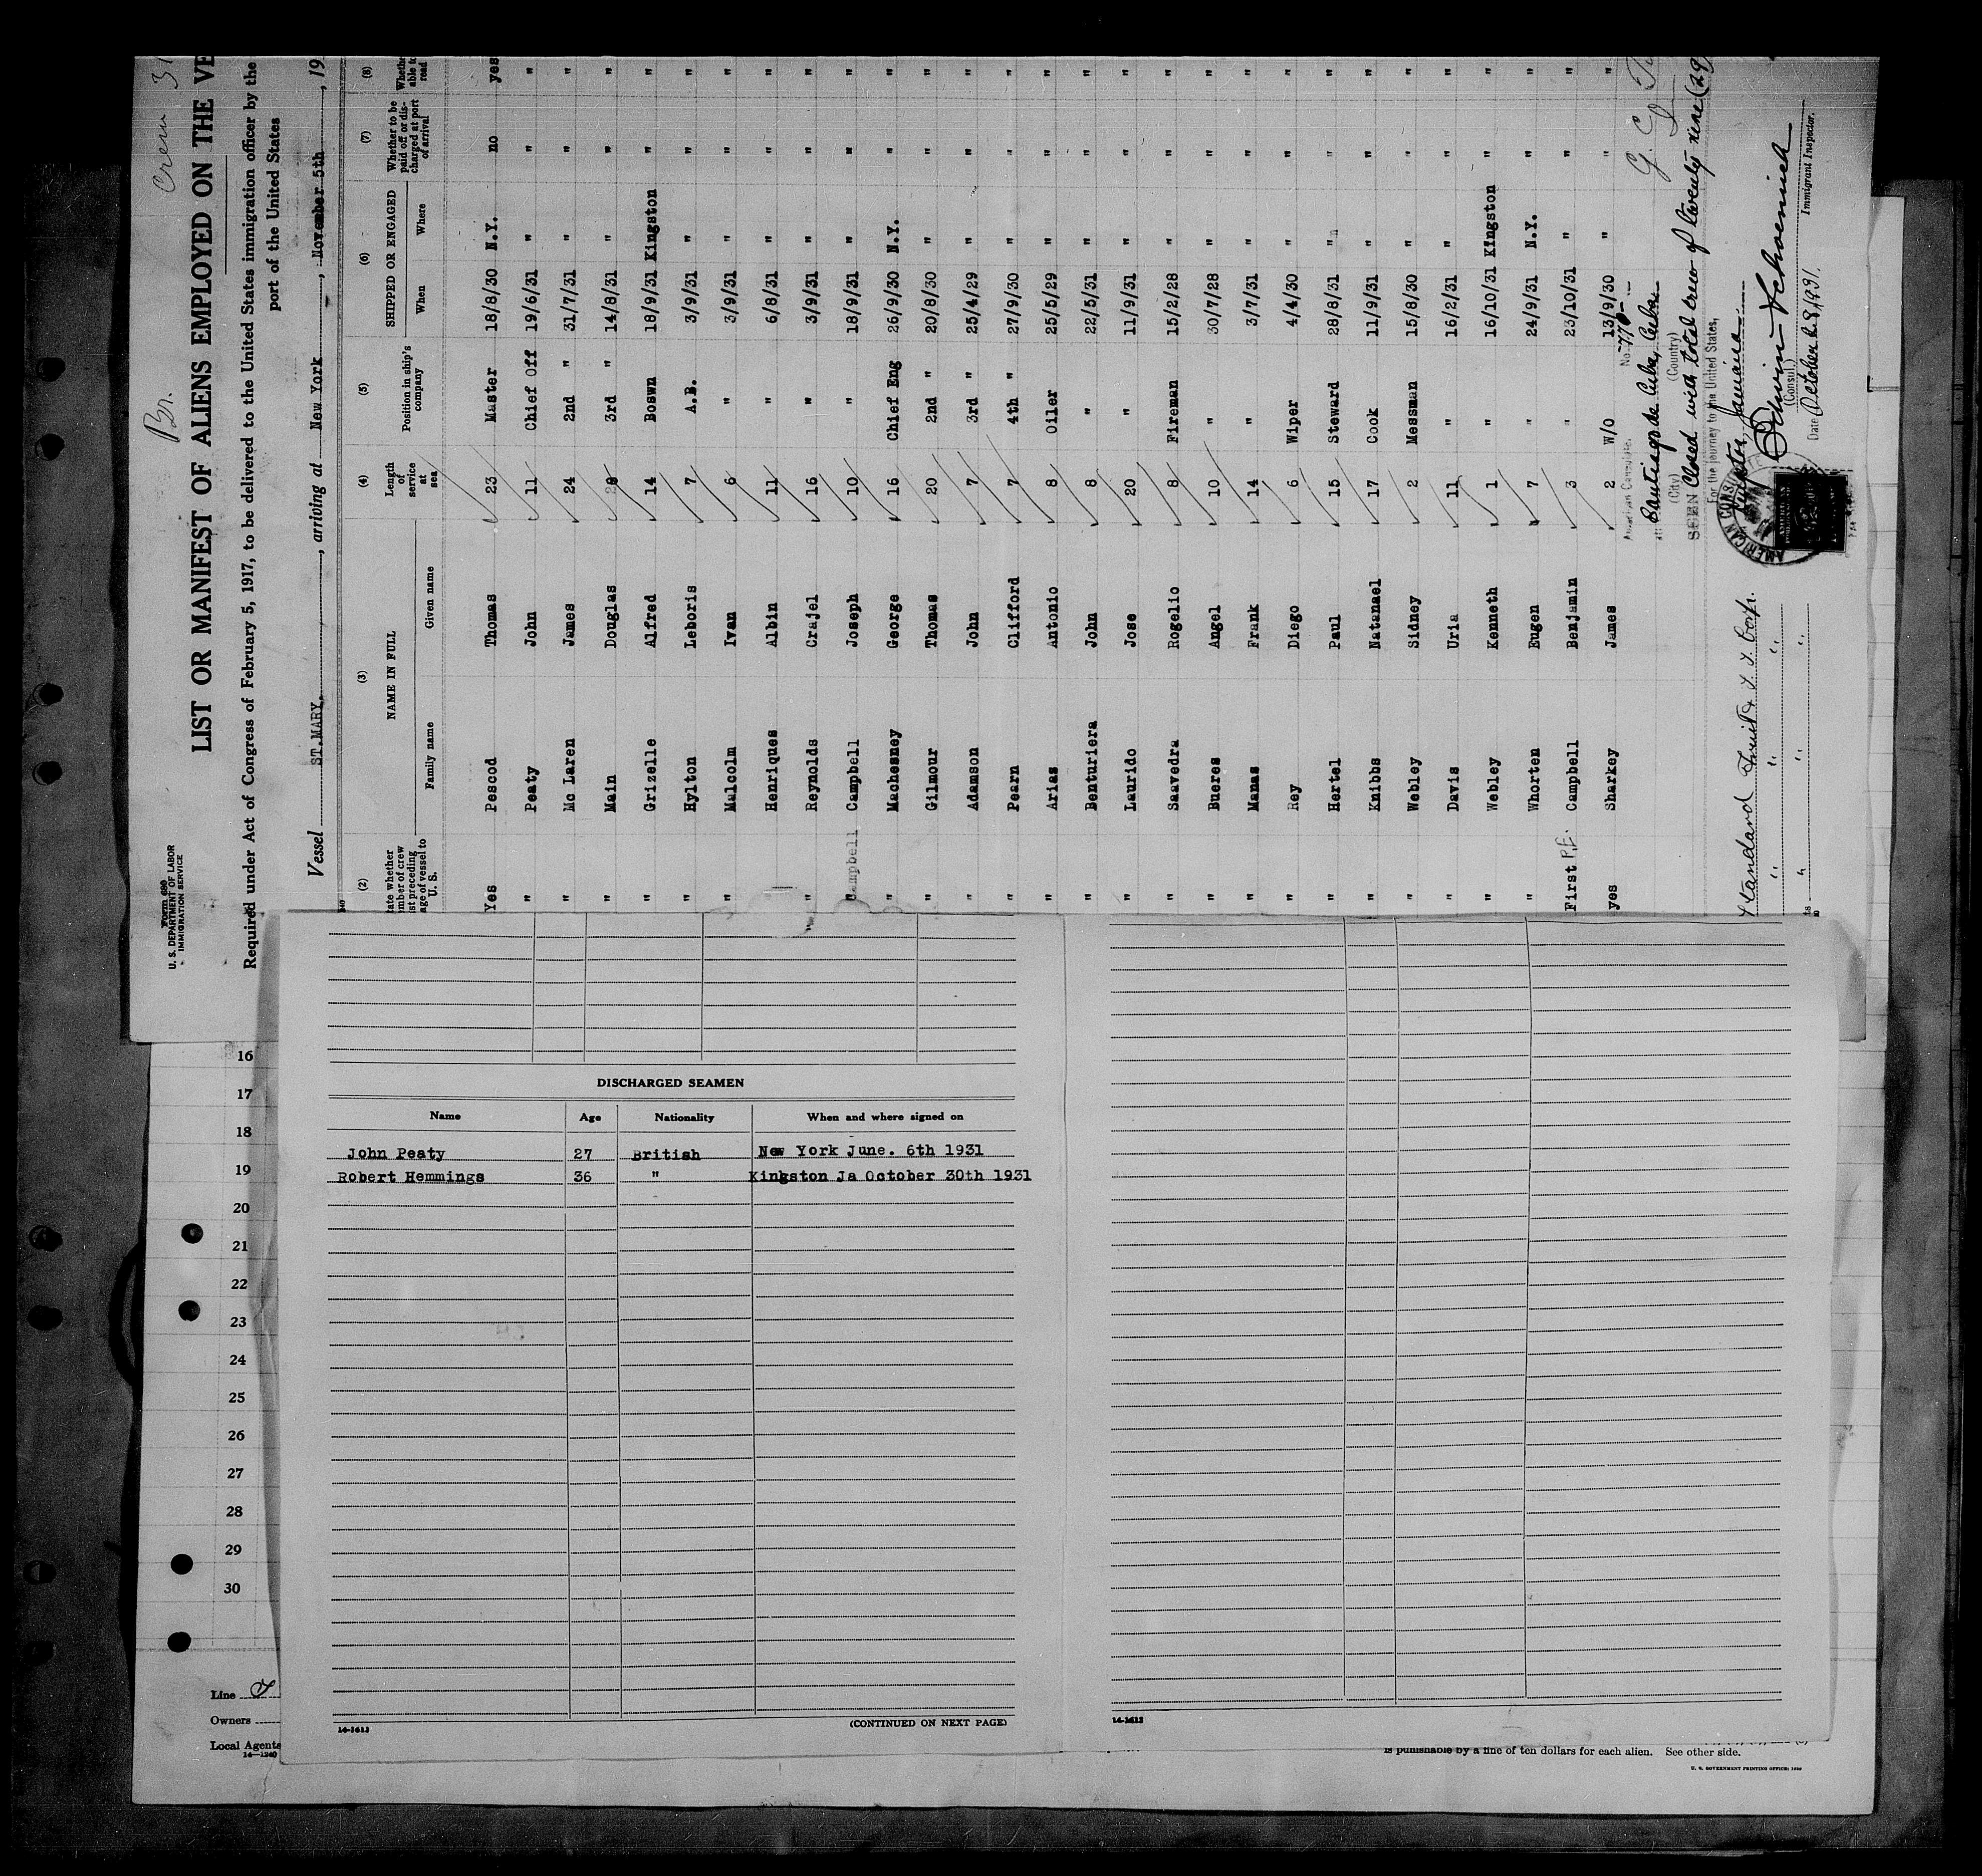 Br.
Crew 31
Form 680
U. S. DEPARTMENT OF LABOR
IMMIGRATION SERVICE
LIST OR MANIFEST OF ALIENS EMPLOYED ON THE VE
Required under Act of Congress of February 5, 1917, to be delivered to the United States immigration officer by the
port of the United States
Vessel ST.MARY. , arriving at New York , November 5th , 19
(2) (3) (4) (5) (6) (7) (8)
tate whether
mber of crew
st preceding
age of vessel to
U. S.
NAME IN FULL
Family name Given name
Length
of
service
at
sea
Position in ship's
company
SHIPPED OR ENGAGED
When Where
Whether to be
paid off or dis-
charged at port
of arrival
Whethe
able to
read
Yes Pescod Thomas 23 Master 18/8/30 N.Y. no yes
" Peaty John 11 Chief Off 19/6/31 " " "
" Mc Laren James 24 2nd " 31/7/31 " " "
" Main Douglas 3rd " 14/8/31 " " "
" Grizelle Alfred 14 Boswn 18/9/31 Kingston " "
" Hylton Leboris 7 A.B. 3/9/31 " " "
" Malcolm Ivan 6 " 3/9/31 " " "
" Henriques Albin 11 " 6/8/31 " " "
" Reynolds Crajel 16 " 3/9/31 " " "
Campbell Campbell Joseph 10 " 18/9/31 " " "
" Machesney George 16 Chief Eng 26/9/30 N.Y. " "
" Gilmour Thomas 20 2nd " 20/8/30 " " "
" Adamson John 7 3rd " 25/4/29 " " "
" Pearn Clifford 7 4th " 27/9/30 " " "
" Arias Antonio 8 Oiler 25/5/29 " " "
" Benturiera John 8 " 22/5/31 " " "
" Laurido Jose 20 " 11/9/31 " " "
" Saavedra Rogelio 8 Fireman 15/2/28 " " "
" Bueres Angel 10 " 30/7/28 " " "
" Manas Frank 14 " 3/7/31 " " "
" Rey Diego 6 Wiper 4/4/30 " " "
" Hertel Paul 15 Steward 28/8/31 " " "
" Knibbs Natanael 17 Cook 11/9/31 " " "
" Webley Sidney 2 Messman 15/8/30 " " "
" Davis Uria 11 " 16/2/31 " " "
" Webley Kenneth 1 " 16/10/31 Kingston " "
" Whorten Eugen 7 " 24/9/31 N.Y. " "
First P.E. Campbell Benjamin 3 " 23/10/31 " " "
yes Sharkey James 2 W/O 13/9/30 " " "
American Consulate, No. 770
at Santiago de Cuba, Cuba
(City) (Country)
SEEN Closed with total crew of twenty nine (29)
For the journey to the United States,
Kingston, Jamaica
AMERICAN CONSULATE
Edwin Schoenrich
(Consul.)
Date October 28, 1931.
Immigrant Inspector.
Standard Fruit & S. S. Corp.
" " "
" " "
DISCHARGED SEAMEN
Name Age Nationality When and where signed on
John Peaty 27 British New York June. 6th 1931
Robert Hemmings 36 " Kingston Ja October 30th 1931
14-1613
(CONTINUED ON NEXT PAGE)
14-1613
16
17
18
19
20
21
22
23
24
25
26
27
28
29
30
Line
Owners
Local Agents
14—1240
is punishable by a fine of ten dollars for each alien. See other side.
U. S. GOVERNMENT PRINTING OFFICE: 1930